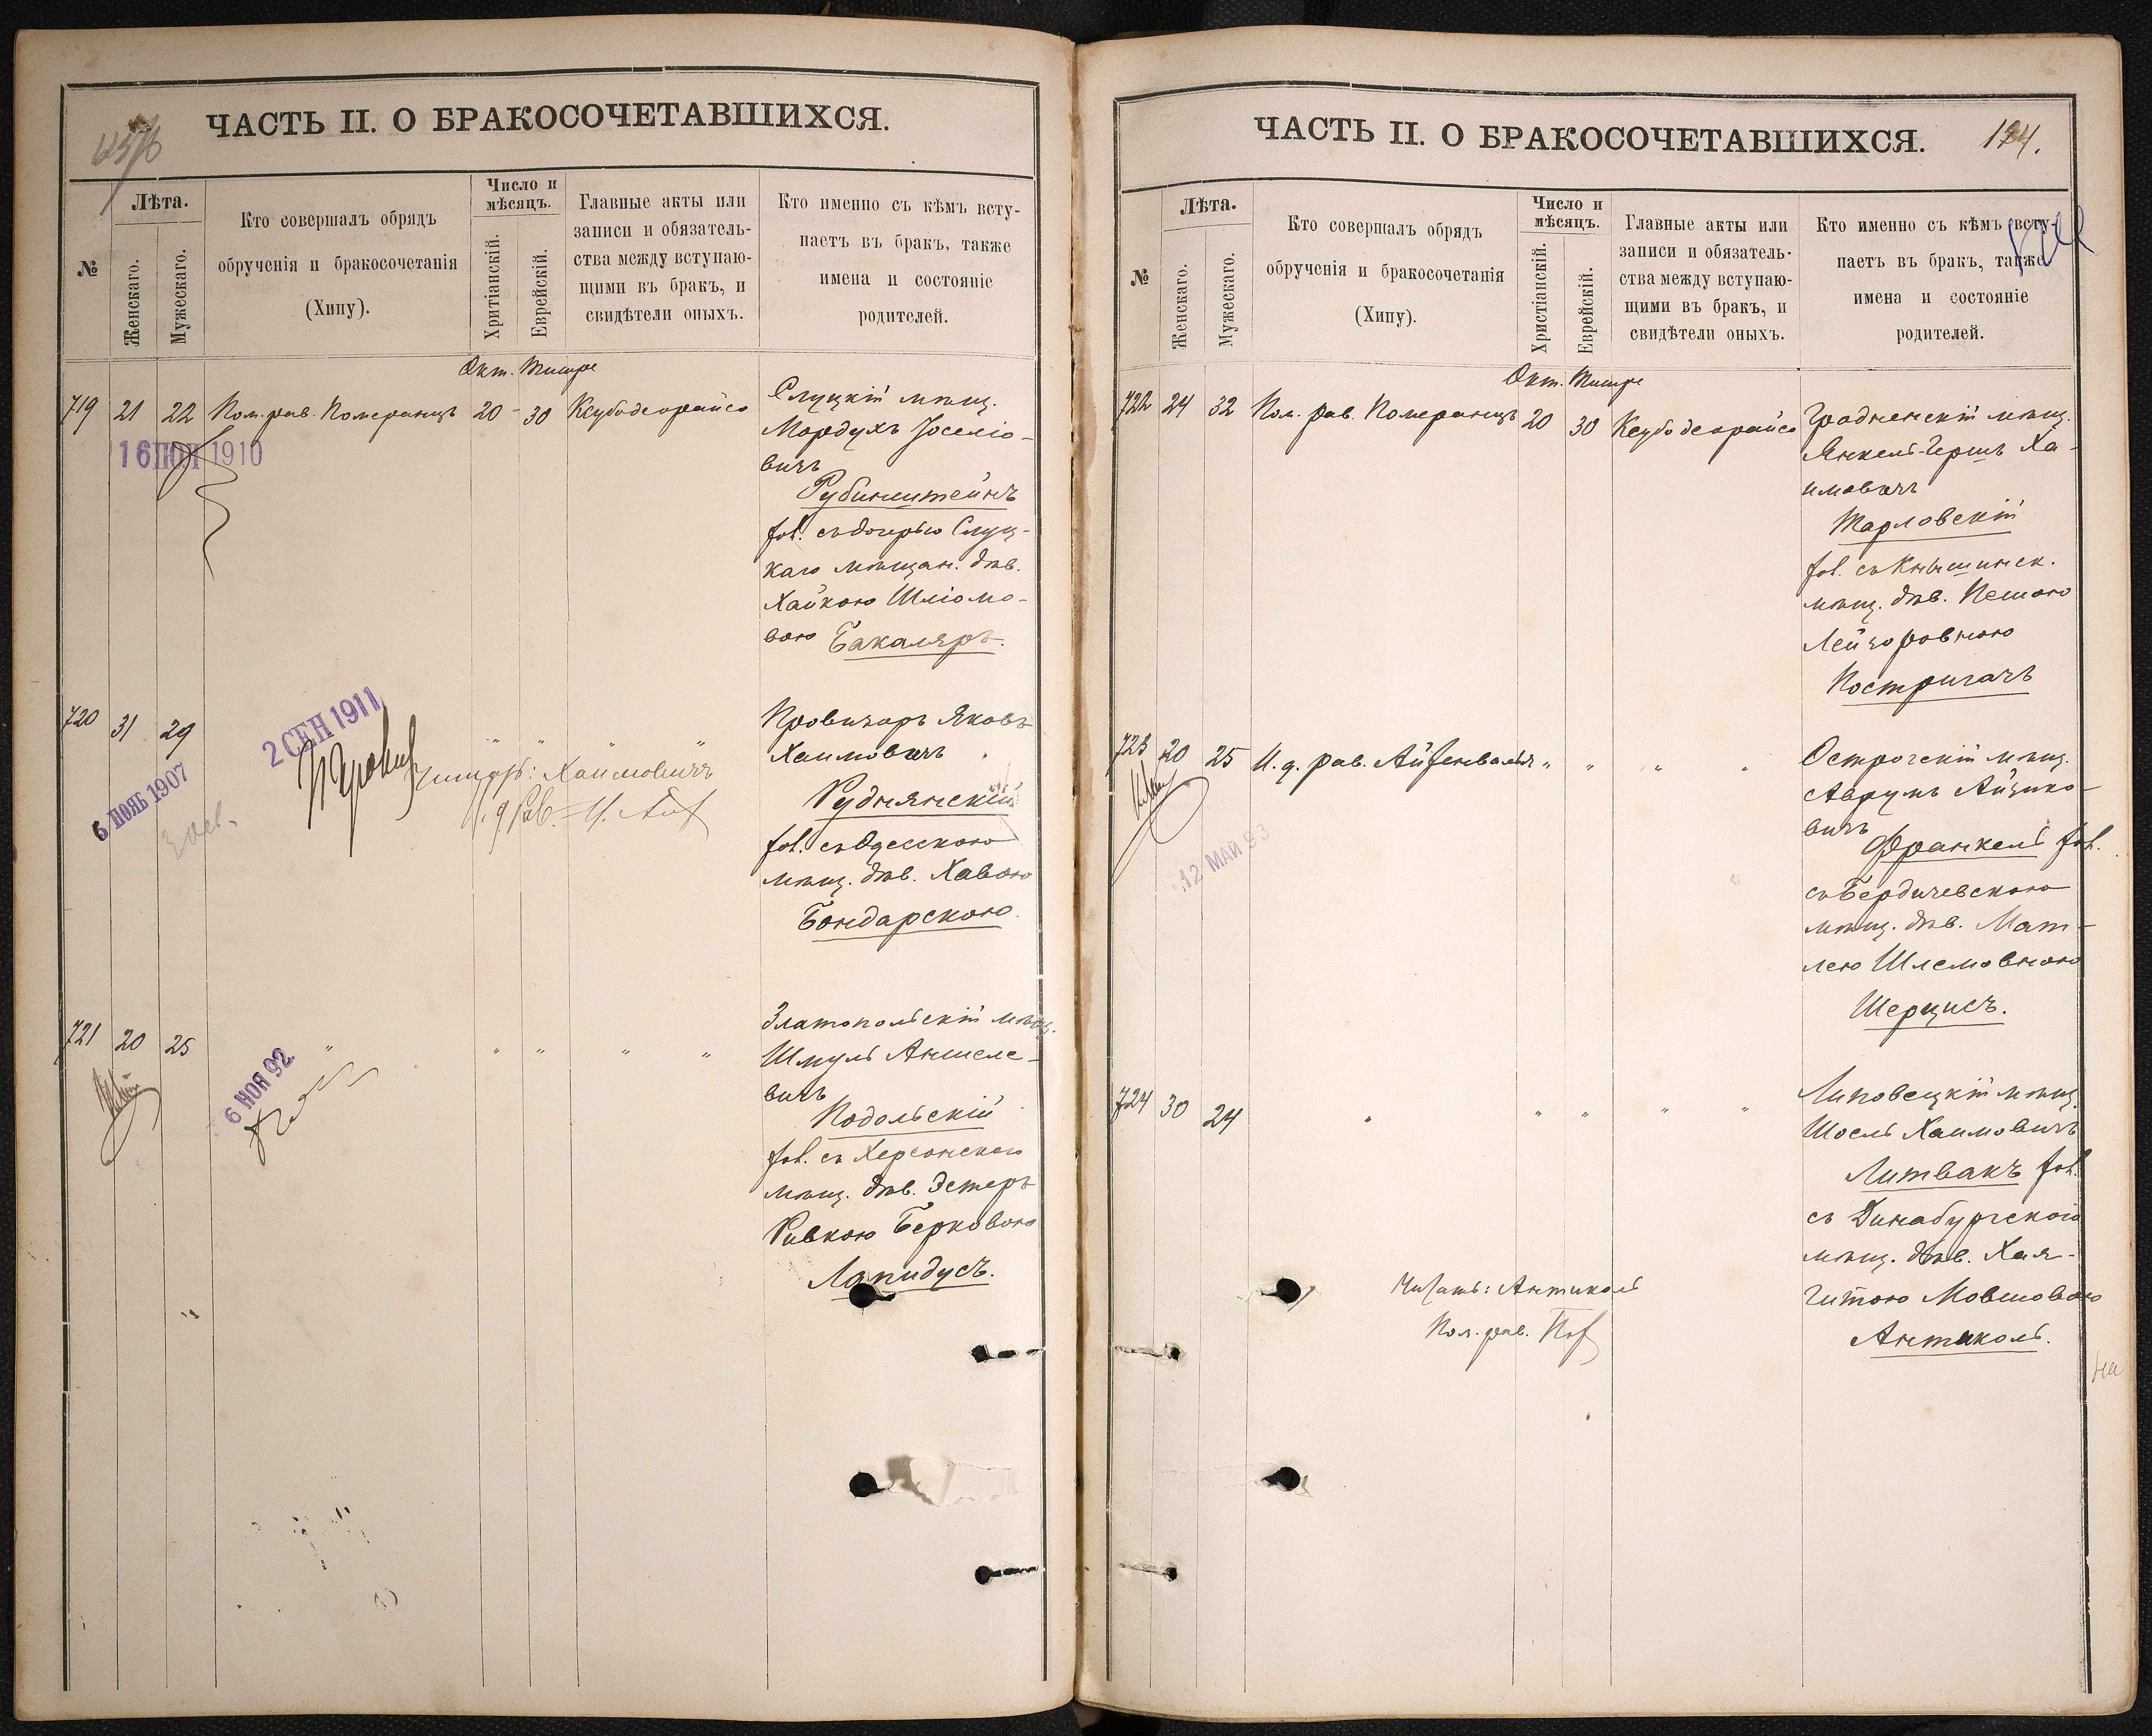 ЧАСТЬ II. О БРАКОСОЧЕТАВШИХСЯ.
№
Лѣта.
Женскаго.
Мужескаго.
Кто совершалъ обрядъ
обрученія и бракосочетанія
(Хипу).
Число и
мѣсяцъ.
Хритіанскій.
Еврейскій.
Главные акты или
записи и обязатель-
ства между вступаю-
щими въ бракъ, и
свидѣтели оныхъ.
Кто именно съ кѣмъ всту-
паетъ въ бракъ, также
имена и состояніе
родителей.
Окт. Тишре
719 21 22 Пом. рав. Померанцъ 20 30 Ксубодеорайсо
16 ІЮЛ 1910
Слуцкій мѣщ.
Мордухъ Іоселіо-
вичъ
Рубинштейнъ
хол. съ дочерью Слуц-
каго мѣщан. дѣв.
Хайкою Шліомо-
вою Бакаляръ.
720 31 29 " " " "
2 СЕН 1911
6 НОЯБ 1907
Читать: Хаимовичъ
И. д. Рав.
Провизоръ Яковъ
Хаимовичъ
Руднянскій
хол. съ Одесскою
мѣщ. дѣв. Хавою
Бондарскою.
721 20 25 " " " " "
6 НОЯ 92
Златопольскій мѣщ.
Шмуль Аншеле-
вичъ
Подольскій
хол. съ Херсонскою
мѣщ. дѣв. Эстеръ
Ривкою Берковою
Лапидусъ.
ЧАСТЬ II. О БРАКОСОЧЕТАВШИХСЯ.
124.
№
Лѣта.
Женскаго.
Мужескаго.
Кто совершалъ обрядъ
обрученія и бракосочетанія
(Хипу).
Число и
мѣсяцъ.
Христіанскій.
Еврейскій.
Главные акты или
записи и обязатель-
ства между вступаю-
щими въ бракъ, и
свидѣтели оныхъ.
Кто именно съ кѣмъ всту-
паетъ въ бракъ, также
имена и состояніе
родителей.
Окт. Тишре
722 24 32 Пом. рав. Померанцъ 20 30 Ксубодеорайсо
Гродненскій мѣщ.
Янкель-Гершъ Ха-
имовичъ
Тарловскій
хол. съ Кнышинск.
мѣщ. дѣв. Пешою
Лейзоровною
Постригачъ
723 20 25 И. д. рав. Айзенвальдъ " " " "
12 МАЙ 93
Острогскій мѣщ.
Аврумъ Айзико-
вичъ
Франкель хол.
съ Бердичевскою
мѣщ. дѣв. Мат-
лею Шлемовною
Шерцисъ.
724 30 24 " " " " "
Липовецкій мѣщ.
Іосель Хаимовичъ
Литвакъ хол.
съ Динабургскою
мѣщ. дѣв. Хая-
Гитою Мовшовою
Антиколь.
Читать: Антиколь
Пом. рав.